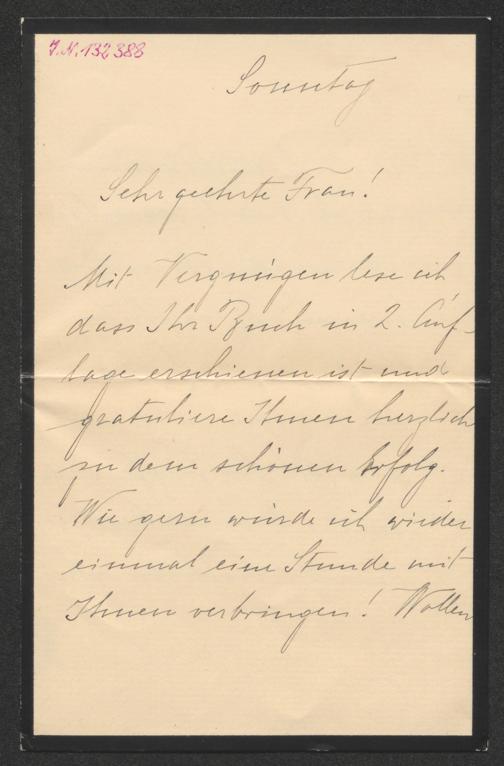 J.N. 132388
Sonntag
Sehr geehrte Frau!
Mit Vergnügen lese ich
dass Ihr Buch in 2. Auf-
lage erschienen ist und
gratuliere Ihnen herzlich
zu dem schönen Erfolg.
Wie gern würde ich wieder
einmal eine Stunde mit
Ihnen verbringen! Wollen